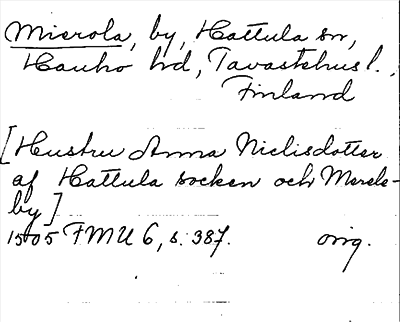 Mierola, by, Hattula sn,
Hauho hd, Tavastehusl.,
Finland
[Hustru Anna Niclisdotter
af Hattula socken och Merele-
by]
1505 FMU 6, s. 387. orig.